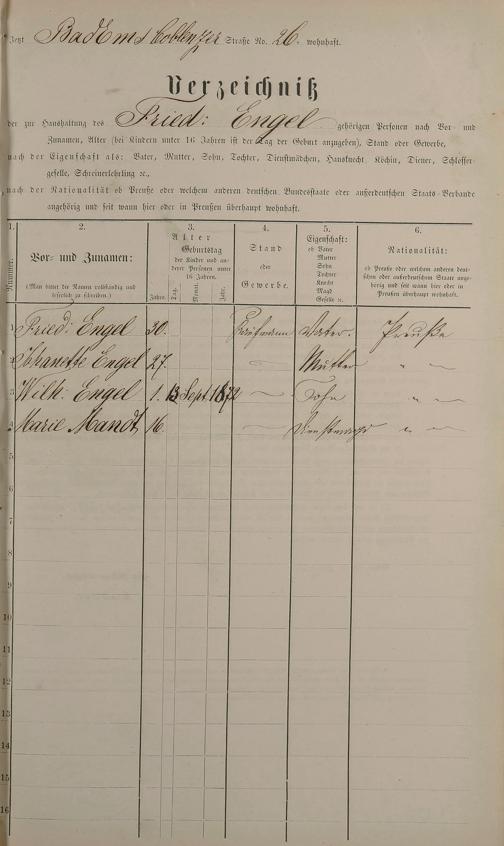 Jetzt Bad Ems Coblenzer Straße No. 26. wohnhaft.
Verzeichniß
der zur Haushaltung des Fried: Engel gehörigen Personen nach Vor- und
Zunamen, Alter (bei Kindern unter 16 Jahren ist der Tag der Geburt anzugeben), Stand oder Gewerbe,
nach der Eigenschaft als: Vater, Mutter, Sohn, Tochter, Dienstmädchen, Hausknecht, Köchin, Diener, Schlosser-
geselle, Schreinerlehrling ꝛc.,
nach der Nationalität ob Preuße oder welchem anderen deutschen Bundesstaate oder außerdeutschem Staats-Verbande
angehörig und seit wann hier oder in Preußen überhaupt wohnhaft.
1. 2. 3. 4. 5. 6.
Nummer.
Vor- und Zunamen:
(Man bittet die Namen vollständig und
leserlich zu schreiben.)
Alter
Geburtstag
der Kinder und an-
derer Personen unter
16 Jahren.
Jahre. Tag. Monat. Jahr.
Stand
oder
Gewerbe.
Eigenschaft:
ob Vater
Mutter
Sohn
Tochter
Knecht
Magd
Geselle ꝛc.
Nationalität:
ob Preuße oder welchem anderen deut-
schen oder außerdeutschem Staate ange-
hörig und seit wann hier oder in
Preußen überhaupt wohnhaft.
1 Fried: Engel 30. Kaufmann Vater. Preuße
2 Johanette Engel 27. — Mutter " —
3 Wilh: Engel 1. 13 Sept. 1872 — Sohn " —
4 Marie Mandt 16. — Dienstmagd " —
5
6
7
8
9
10
11
12
13
14
15
16